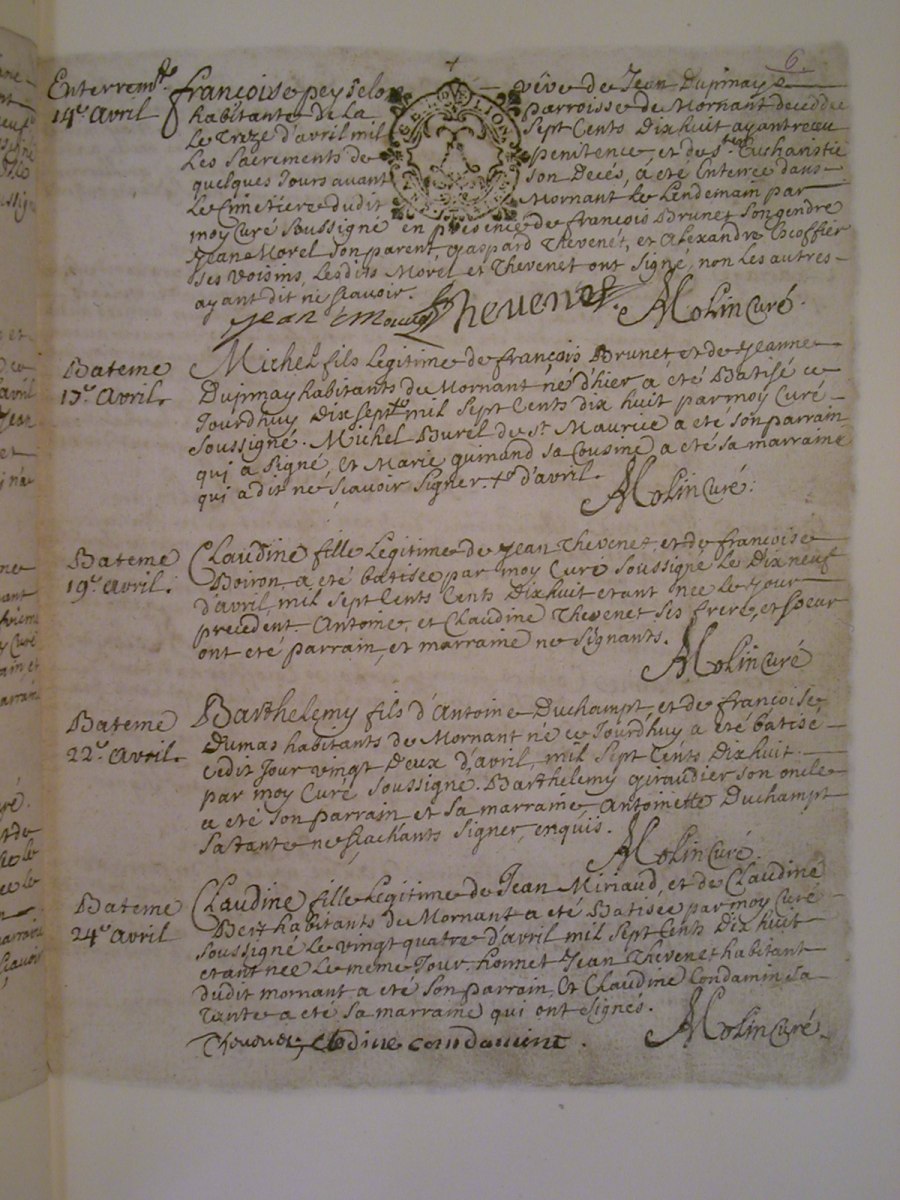 6.
Enterremt
14e Avril
françoise peyselo vêve de Jean Dupinay
habitante de La parroisse de Mornant decedée
Le Treze d'avril mil Sept Cents Dix huit ayant receu
Les Sacrements de penitence et de ste Eucharistie
quelques Jours avant son Decés, á eté Enterrée dans
Le Cimetiere dudit Mornant Le Lendemain par
moy Curé Soussigné en présence de françois Brunet son gendre
Jean Morel Son parent, gaspard Thevenét, et Alexandre
ses voisins, Lesdits Morel et Thevenet ont signé, non Les autres
ayant dit ne sçavoir.
Jean Thevenet Molin Curé.
Bateme
17e Avril.
Michel fils Legitime de françois Brunet et de Jeanne
Dupinay habitants de Mornant né d'hier, a été Batisé ce
Jourdhuy Dix sept mil Sept Cents dix huit par moy Curé
soussigné. Michel Burel de st Maurice a eté son parrain
qui a signé, Et Marie gumond sa Cousine a eté sa marraine
qui a dit ne sçavoir signer. d'avril.
Molin Curé.
Bateme
19e Avril.
Claudine fille Legitime de Jean Thevenet et de francoise
Boiron a eté batisée par moy Curé soussigné Le Dix neuf
d'avril mil Sept Cents Cents Dix huit etant née Le Jour
precedent. Antoine, et Claudine Thevenet ses frere, et soeur
ont eté parrain, et marraine ne signants.
Molin Curé
Bateme
22e Avril.
Barthelemy fils d'Antoine Duchampt, et de françoise
Dumas habitants de Mornant né ce Jourdhuy a eté batisé
cedit Jour vingt Deux d'avril, mil Sept Cents Dix huit
par moy Curé soussigné. Barthelemy giraudier son oncle
a eté son parrain et sa marraine Antoinette Duchampt
sa tante ne sçachants signer, enquis.
Molin Curé.
Bateme
24e Avril
Claudine fille Legitime de Jean Minaud, et de Claudine
habitants de Mornant a eté Batisée par moy Curé
soussigné Le vingt quatre d'avril mil Sept Cents Dix huit
etant née Le meme Jour. honnet Jean Thevenet habitant
dudit mornant a eté son parrain, Et Claudine Condamin sa
Tante a eté sa marraine qui ont signés.
Molin Curé.